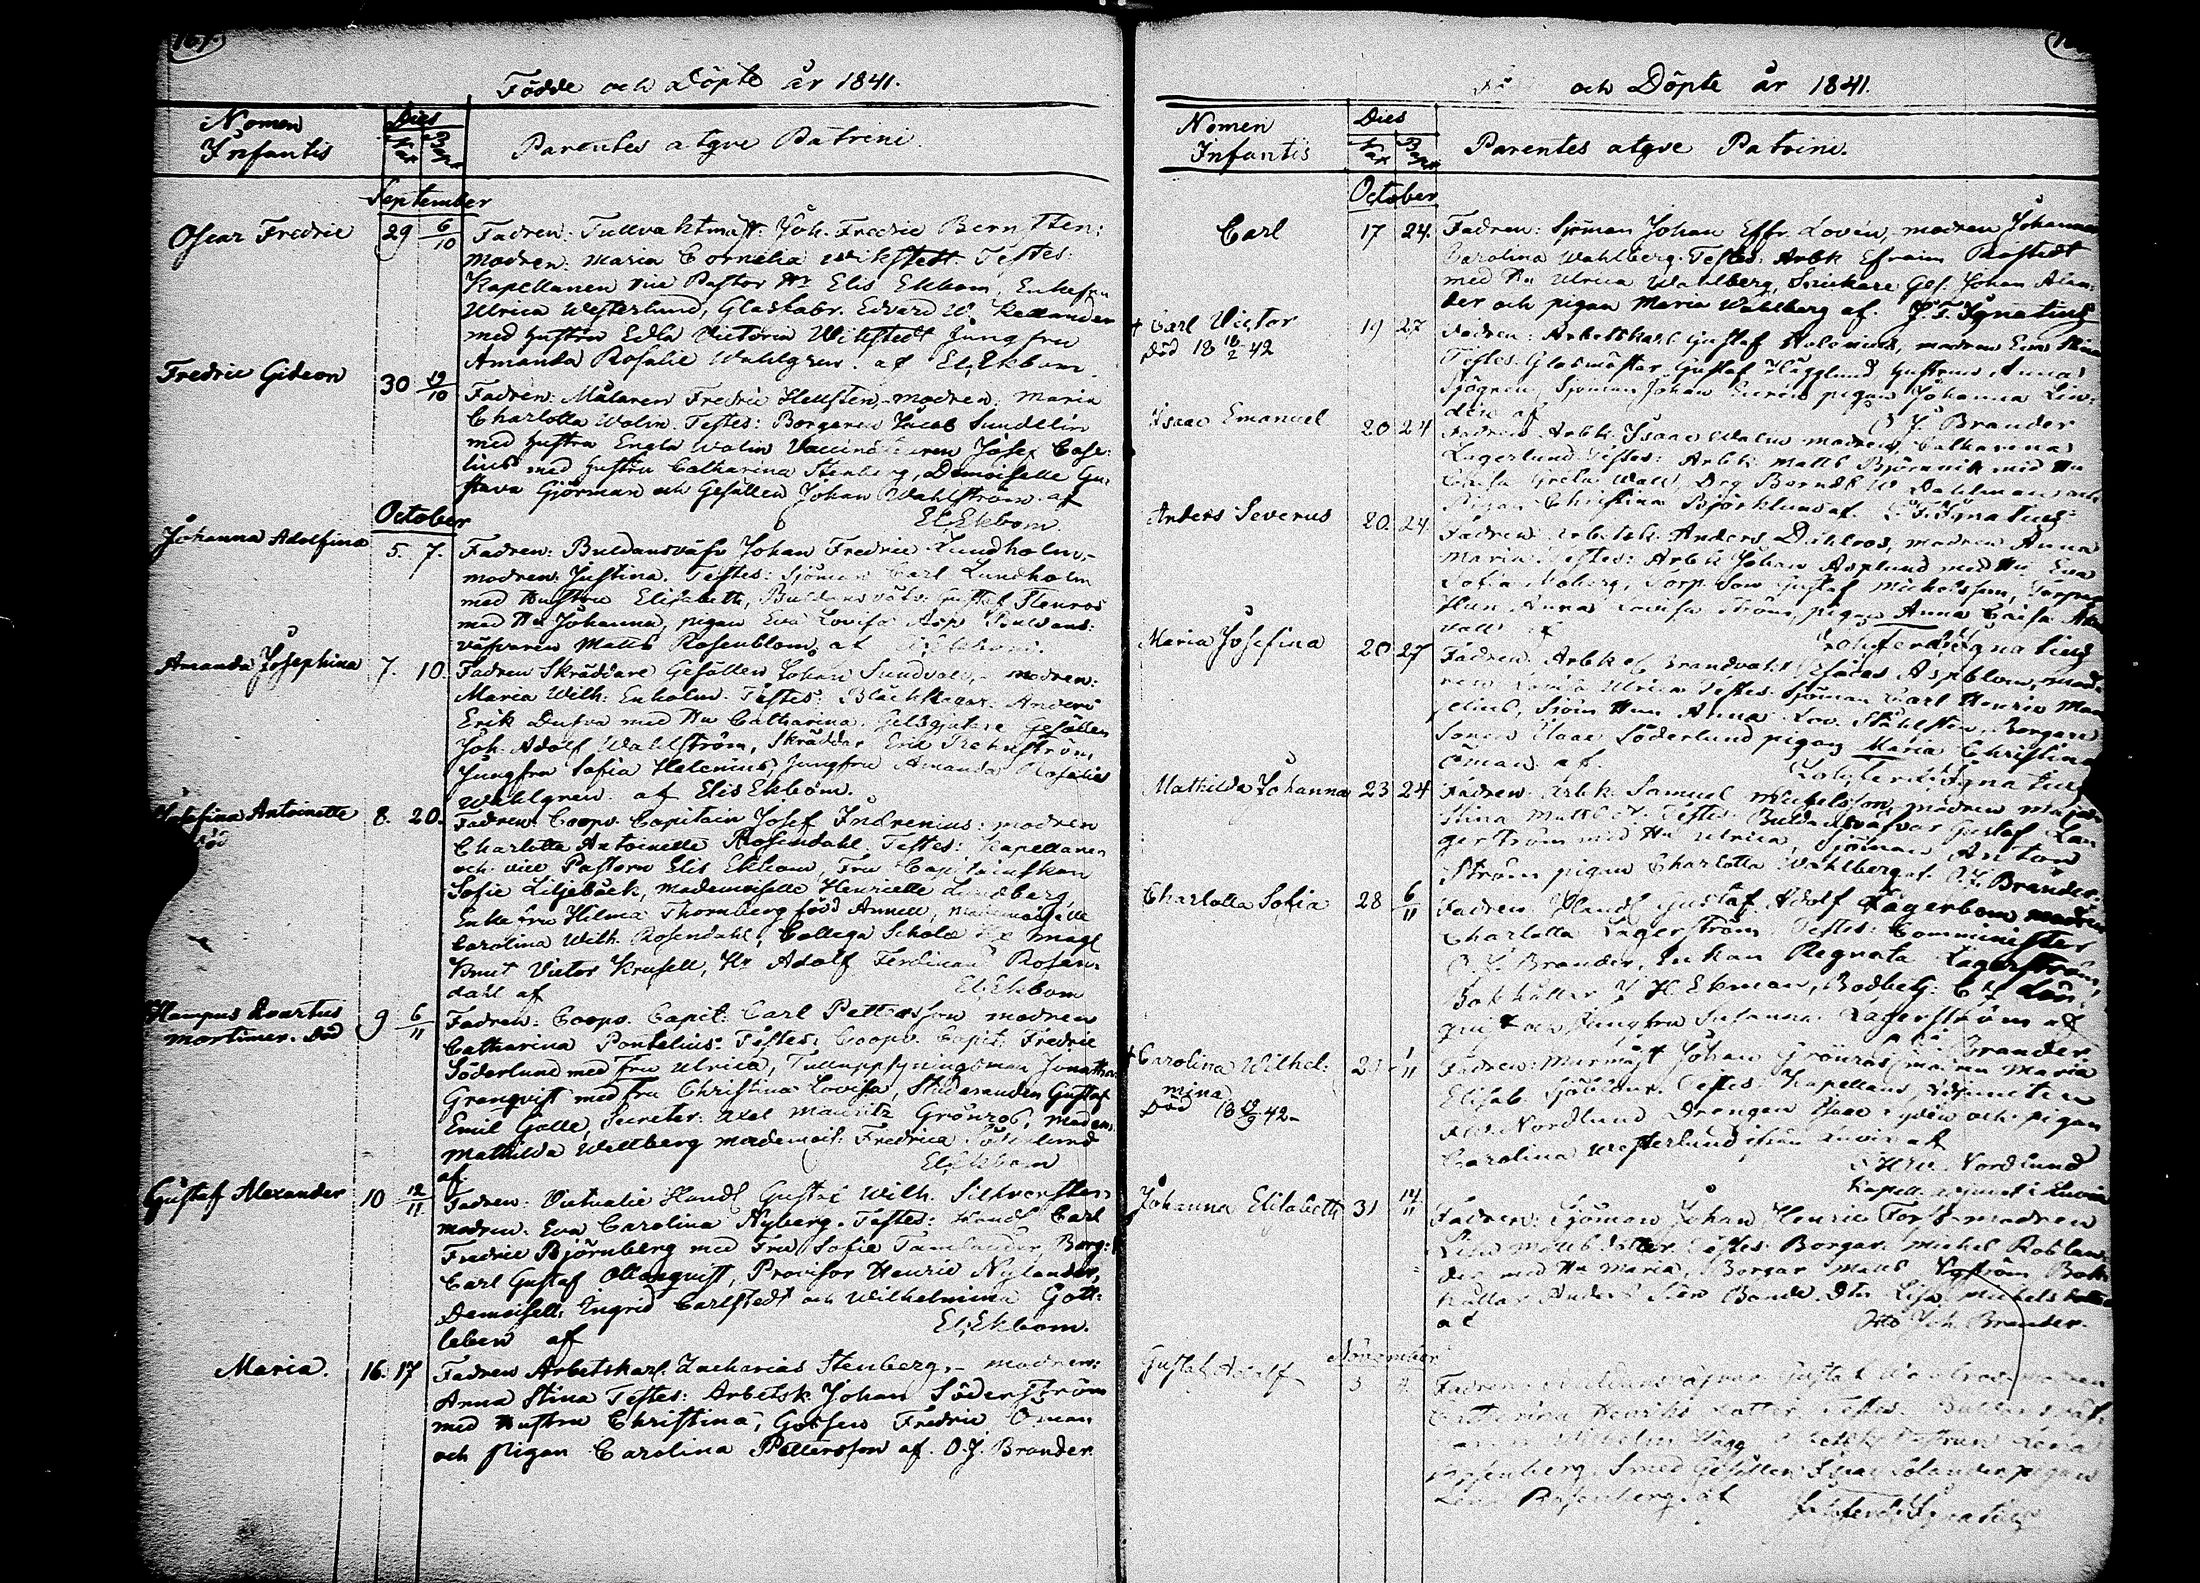 167.
Födde och Döpte år 1841.
Nomen Infantis
Dies
Nat Bapt
Parentes atqve Patrini
September
Oscar Fredric 29 6/10 Fadren: Tullvaktmäst: Joh. Fredric Berntsen:
modren: Maria Cornelia Wikstedt. Testes:
Kapellanen vice Pastor Hr Elis Ekbom, Enkefru
Ulrica Westerlund, Glasfabr. Edvard W.
med hustru Edla Victoria Wikstedt Jungfru
Amanda Rosalie Wahlgren. af El. Ekbom.
Fredric Gideon 30 19/10 Fadren: Målaren Fredric Hellsten, modren: Maria
Charlotta Wolin. Testes: Borgaren Jacob Sundelin
med hustru Engla Wolin Vaccinatören Josef Case-
lius med hustru Catharina Stenberg, Demoiselle Gu-
stava Gjörman och Gesällen Johan Wahlström. af
El. Ekbom.
October
Johanna Adolfina 5. 7. Fadren: Buldansväfv Johan Fredric Lundholm,-
modren: Justina. Testes: Sjöman Carl Lundholm
med hustru Elisabeth, Buldansväfv: Gustaf Stenros
med Hu Johanna, pigan Eva Lovisa Asp Buldans-
väfvaren Matts Rosenblom, af
Amanda Josephina 7. 10. Fadren Skräddare Gesällen Johan Sundvall,- modren:
Maria Wilh: Enholm. Testes: Bläckslagar. Anders
Erik Dufva med Hu Catharina. Gelbgjutare Gesällen
Joh: Adolf Wahlström, Skräddar Erik
Jungfru Sofia Helenius Jungfru Amanda Rosalie
Wahlgren. af Elis Ekbom.
Josefina Antoinette 8. 20. Fadren: Coopv. Capitain Josef Indrenius: modren
död
Charlotta Antoinette Rosendahl. Testes: Kapellanen
och vice Pastorn Elis Ekbom, Fru Capitainskan
Sofie Liljebäck, mademoiselle Henriette Lundberg,
Enkefru Hilma Thornberg född Annell, mademoiselle
Carolina Wilh. Rosendahl, Collega Scholæ Hr Mag
Knut Victor Krusell, Hr Adolf Ferdinand Rosen-
dahl af El. Ekbom
Hampus Qvartus 9 6/11 Fadren: Coopv. Capit: Carl Pettersson modren
Mortimer. Död
Catharina Pontelius: Testes: Coopv. Capit: Fredric
Söderlund med fru Ulrica, Tulluppsyningsman Jonathan
Granqvist med fru Christina Lovisa, Studeranden Gustaf
Emil Galle, Secreter: Axel Mauritz Grönros, madem:
Mathilda Wellberg mademois: Fredrica Söderlund
af El. Ekbom
Gustaf Alexander 10 12/11 Fadren: Victualie Handl Gustaf Wilh. Silfversten
modren: Eva Carolina Nyberg. Testes: Handl Carl
Fredric Björnberg med Fru Sofie Tamlander, Borg:
Carl Gustaf Ollonqvist, Provisor Henric Nylander,
Demoisell: Ingrid Carlstedt och Wilhelmina Gott-
leben af El. Ekbom.
Maria. 16. 17 Fadren Arbetskarl Zacharias Stenberg,- modren:
Anna Stina Testes: Arbetsk. Johan Söderström
med hustru Christina, Gossen Fredric Öman
och pigan Carolina Pettersson af. O. J. Brander.
och Döpte år 1841.
Nomen Infantis
Dies
Nat Bapt
Parentes atqve Patrini.
October
Carl 17 24. Fadren: Sjöman Johan Effr. Lovén, modren Johanna
Carolina Wahlberg. Testes: Arbk Efraim
med Hu Ulrica Wahlberg, Snickare Ges. Johan Alan-
der och pigan Maria Wahlberg af. J. F. Ignatius
† Carl Victor 19 27 Fadren: Arbetskarl Gustaf Helenius, modren Eva Stina
Död 18 18/2 42
Testes: Glasmästar Gustaf Hägglund hustrun Anna
Sjögren, Sjöman Johan pigan Johanna Lin-
dén af O. J. Brander
Isaac Emanuel 20 24 Fadren Arbk. Isaac Walin modren Catharina
Lagerlund. Testes: Arbk. Matts Björnvik med Hu
Caisa Greta Wall, Drg Barndt W Dahlman och
Pigan Christina Björklund af. J. F. Ignatius
Anders Severus 20. 24 Fadren Arbetsk. Anders Dahlroos, modren Anna
Maria. Testes: Arbk Johan Asplund med Hu Eva
Sofia Moberg, Torp. Son Gustaf Michelsson, Torpar
Hun Anna Lovisa Ström, pigan Anna Caisa
af Joh. Ferd. Ignatius
Maria Josefina 20 27 Fadren. Arbk of Brandvakt Esaias Aspblom, mod-
ren Lovisa Ulrica Testes: Sjöman Carl Henric
Sjöm Hun Anna Lov. Ståhlsten, Borgare
Sonen Claas Söderlund pigan Maria Christina
Öman. af. Joh. Ferd. Ignatius
Mathilda Johanna 23 24 Fadren: Arbk Samuel Michelsson, modren Maja
Stina Matts dr. Testes: Buldansväfvar Gustaf Lan-
gerström med Hu Ulrica, Sjöman Anton
Ström pigan Charlotta Wahlberg af. O. J. Brander
Charlotta Sofia 28 6/11 Fadren: Handl Gustaf Adolf Fagerbom modren
Charlotta Lagerström Testes: Comminister
O. J. Brander, Enkan Regnata Lagerström,
Bokhållar J H Ekman, Bodbetj: C. J. Lön-
qvist och Jungfru Susanna Lagerström af
Brander.
† Carolina Wilhel- 29 1/11 Fadren: Murmäst Johan Grönroos, modren Maria
mina
Död 18 19/9 42
Elisab. Sjöblom. Testes: Kapellans Adjuncten
F. W. Nordlund Drengen Isaac Lydén och pigan
Carolina Westerlund ifrån Luvia af
F. W. Nordlund
Kapell. adjunct i Luvia
Johanna Elisabeth 31 14/11 Fadren: Sjöman Johan Henric Forss modren
Lisa Matts dotter. Testes: Borgar. Michel
med Hu Maria, Borgar Matts Nyström Bok-
hållar Anders Sten Bonde Dtr Lisa Michels dotter
af Otto Joh. Brander.
November
Gustaf Adolf 3 Fadren: Buldansväfvar Gustaf modren
Catharina Henriks dotter. Testes: Buldansväf-
Wilhelm Hägg hustrun Lovisa
Rosenberg, Smed Gesällen Isaac Solander pigan
Lena Rosenberg. af Joh. Ferd. Ignatius